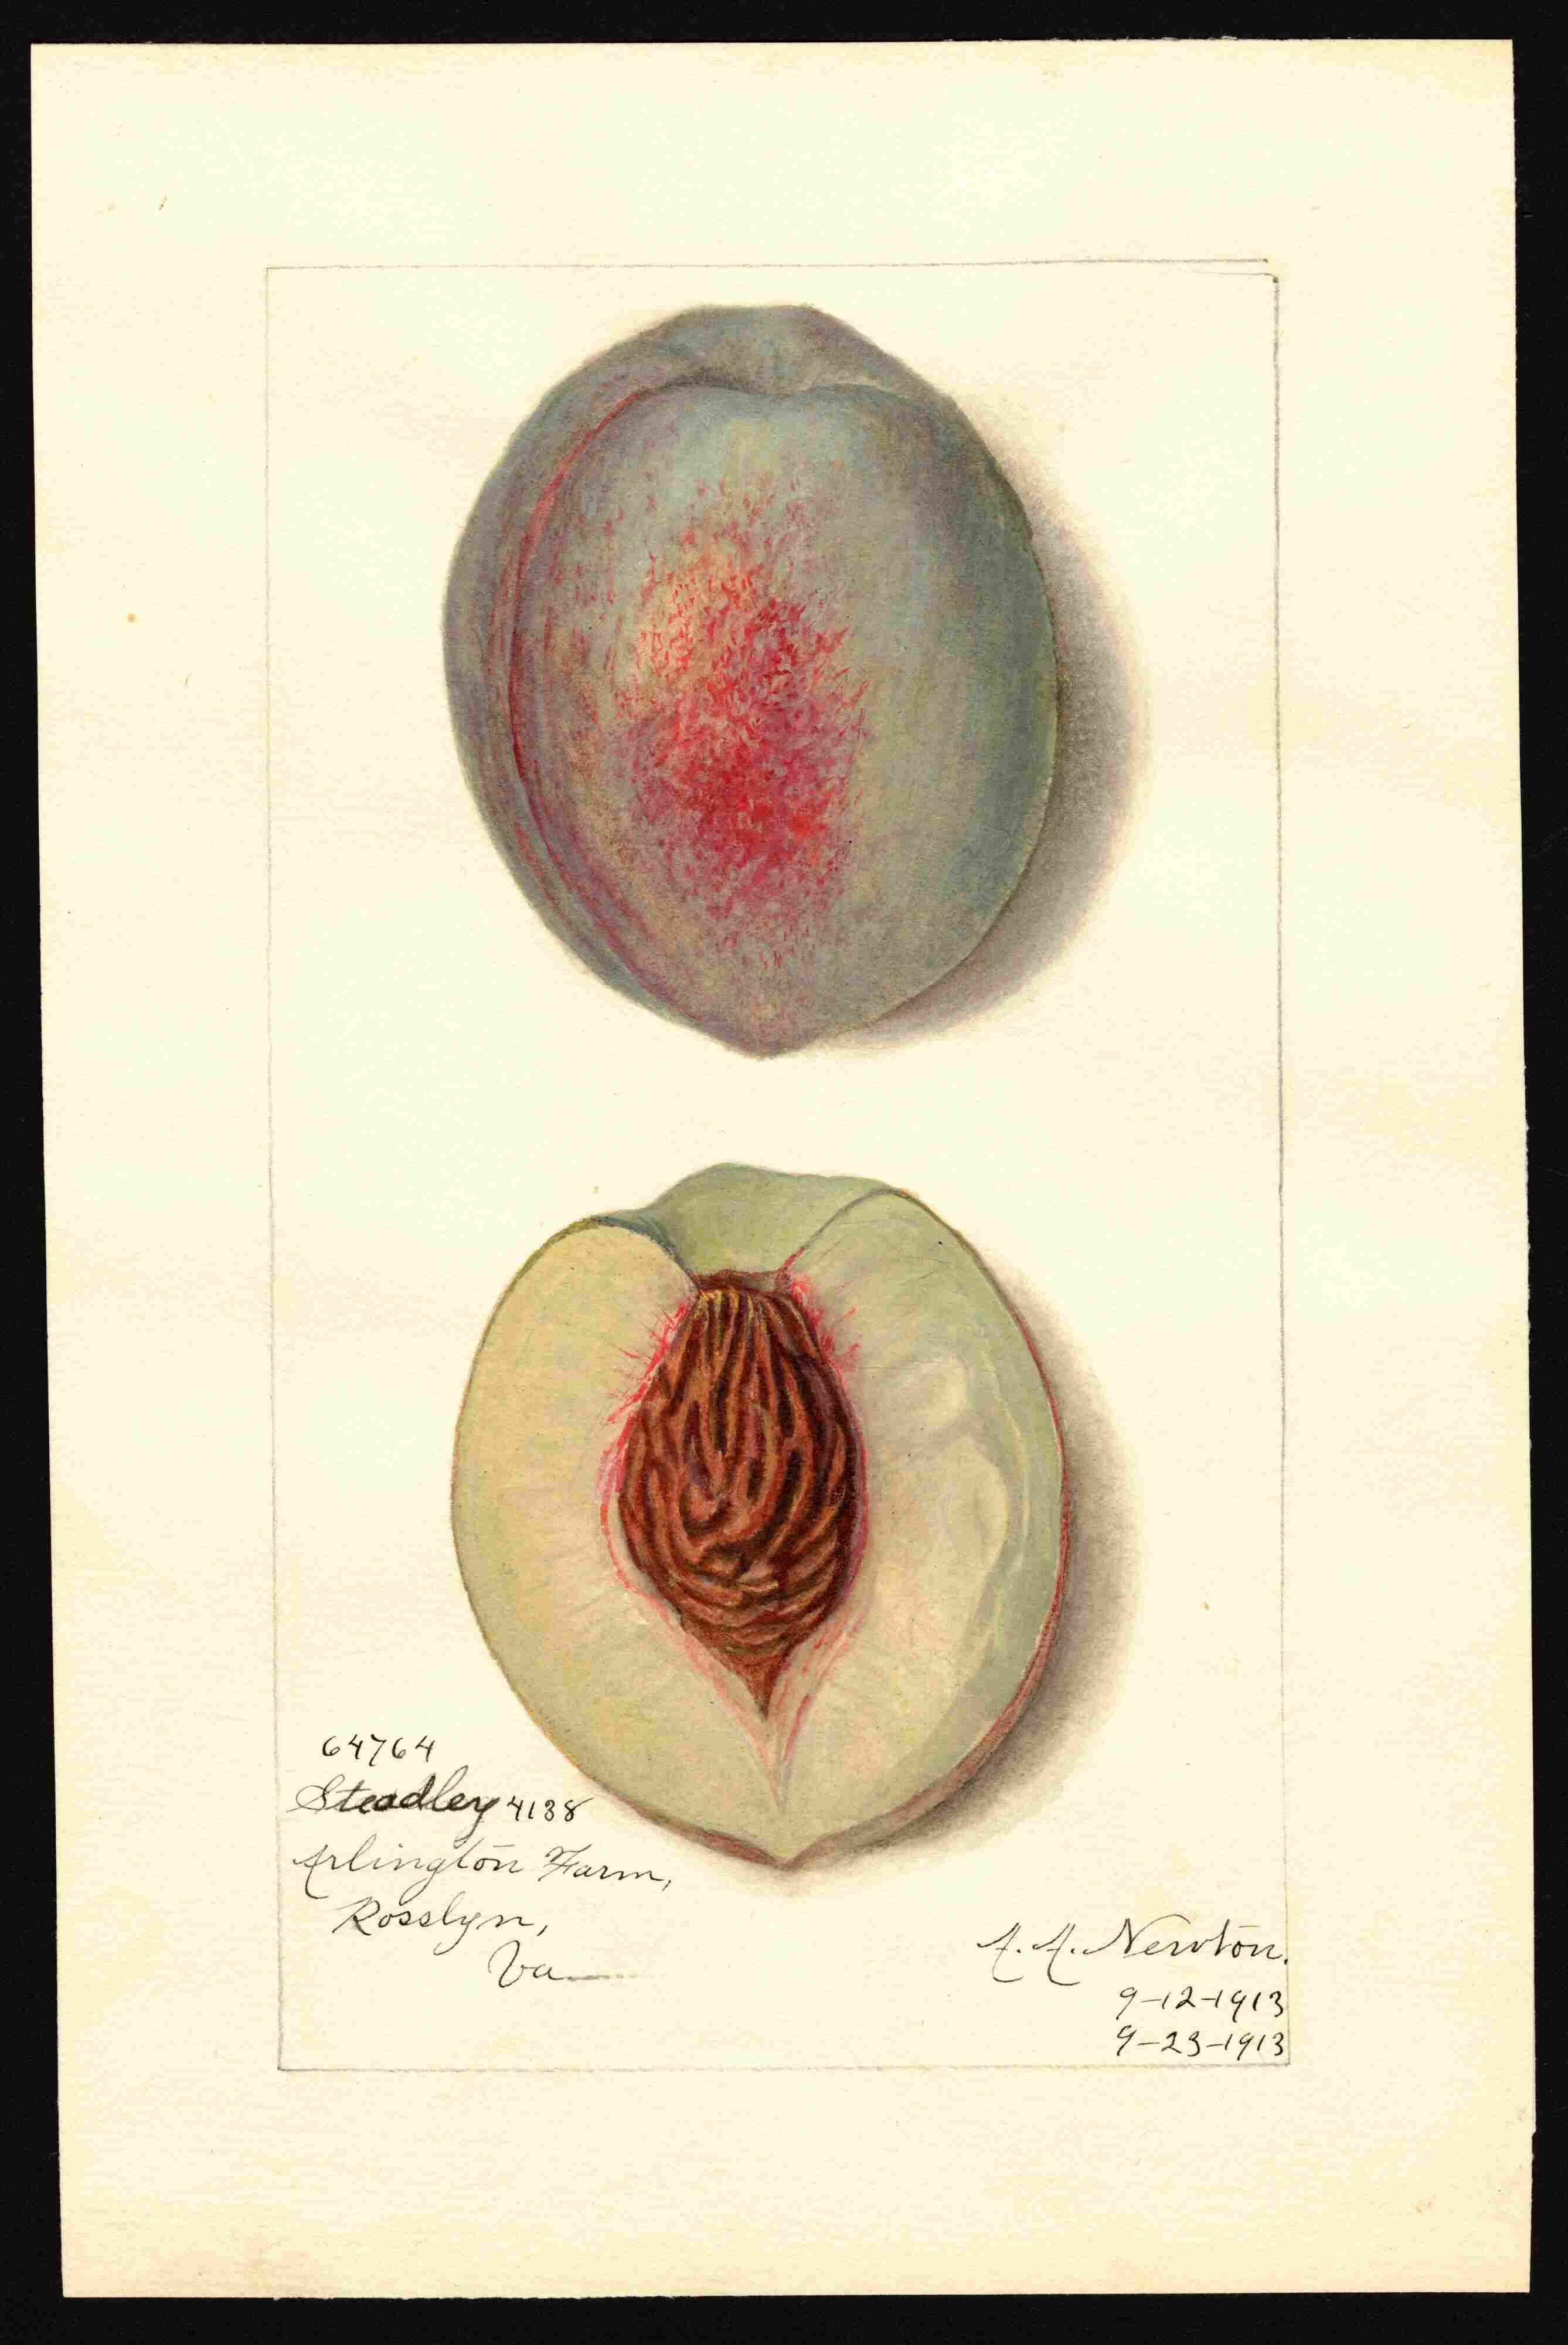 64764
Steadley 4138
Arlington Farm,
Rosslyn,
Va
A. A. Newton.
9-12-1913
9-23-1913